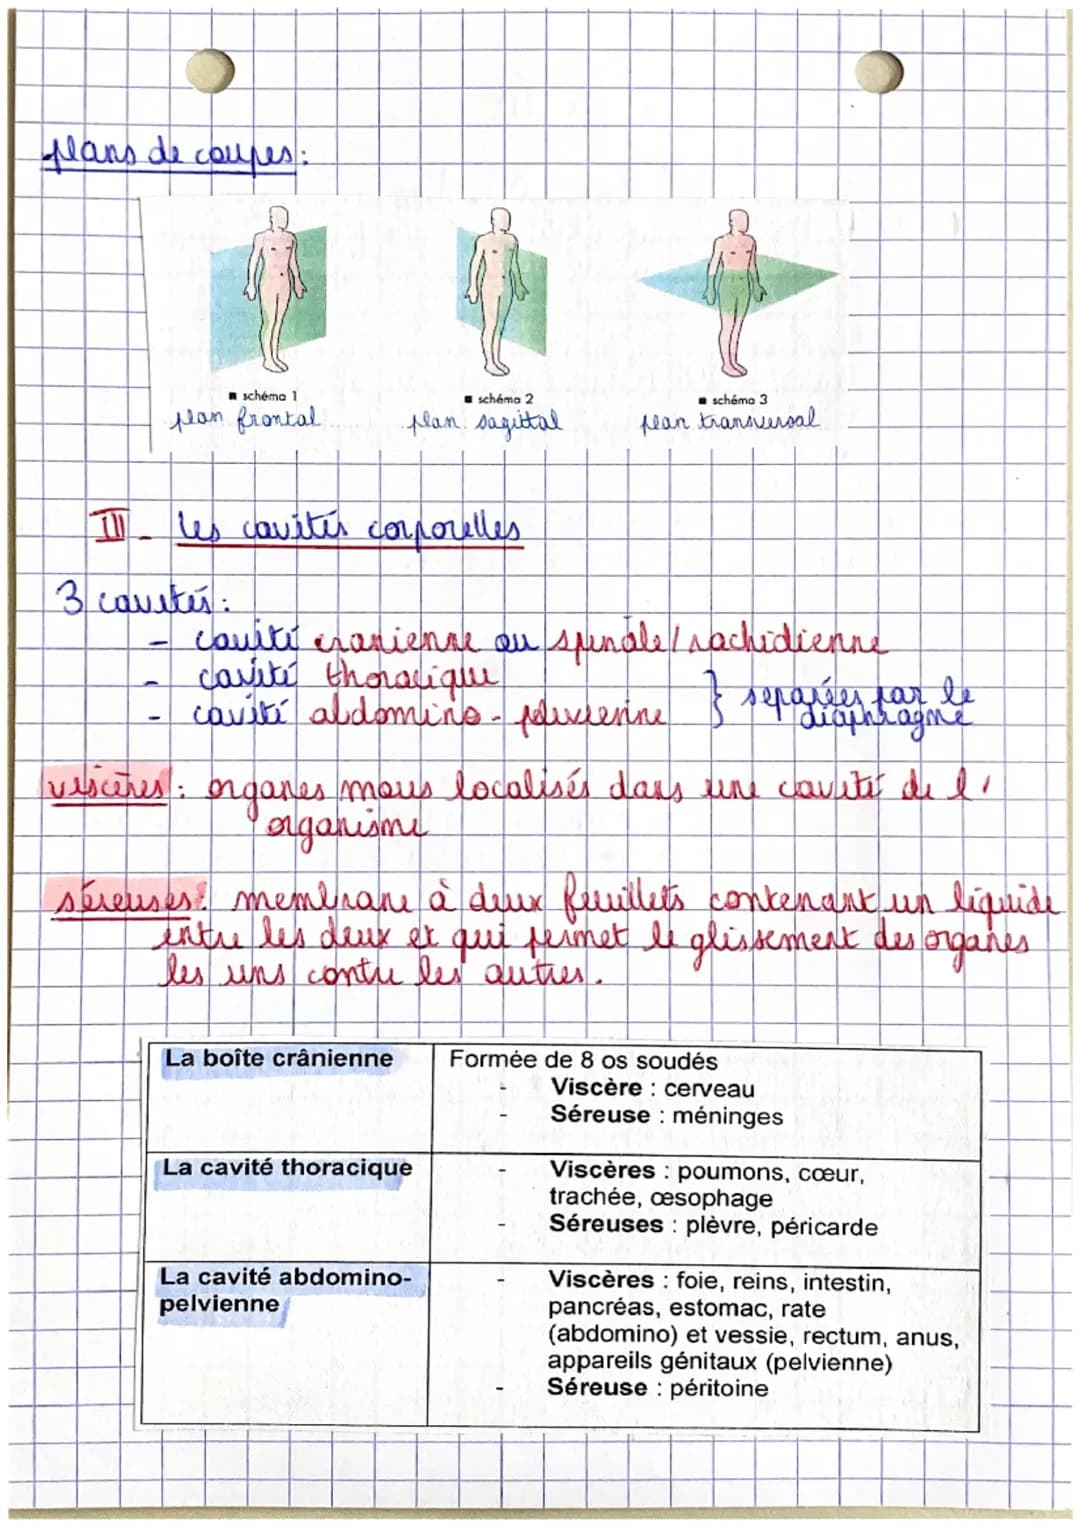 plans de coupes:
■ schéma 1
■ schéma 2
■ schéma 3
plan frontal
plan sagittal
plan transversal
III - les cavités corporelles
3 cavités:
- cavité cranienne ou spinale/rachidienne
- cavité thoracique
- cavité abdomino-pelvienne
} separées par le
diaphragme
viscères: organes mous localisés dans une cavité de l'
organisme
séreuses: membrane à deux feuillets contenant un liquide
entre les deux et qui permet le glissement des organes
les uns contre les autres.
La boîte crânienne
Formée de 8 os soudés
- Viscère : cerveau
- Séreuse : méninges
La cavité thoracique
- Viscères : poumons, cœur,
trachée, œsophage
- Séreuses : plèvre, péricarde
La cavité abdomino-
pelvienne
- Viscères : foie, reins, intestin,
pancréas, estomac, rate
(abdomino) et vessie, rectum, anus,
appareils génitaux (pelvienne)
- Séreuse : péritoine